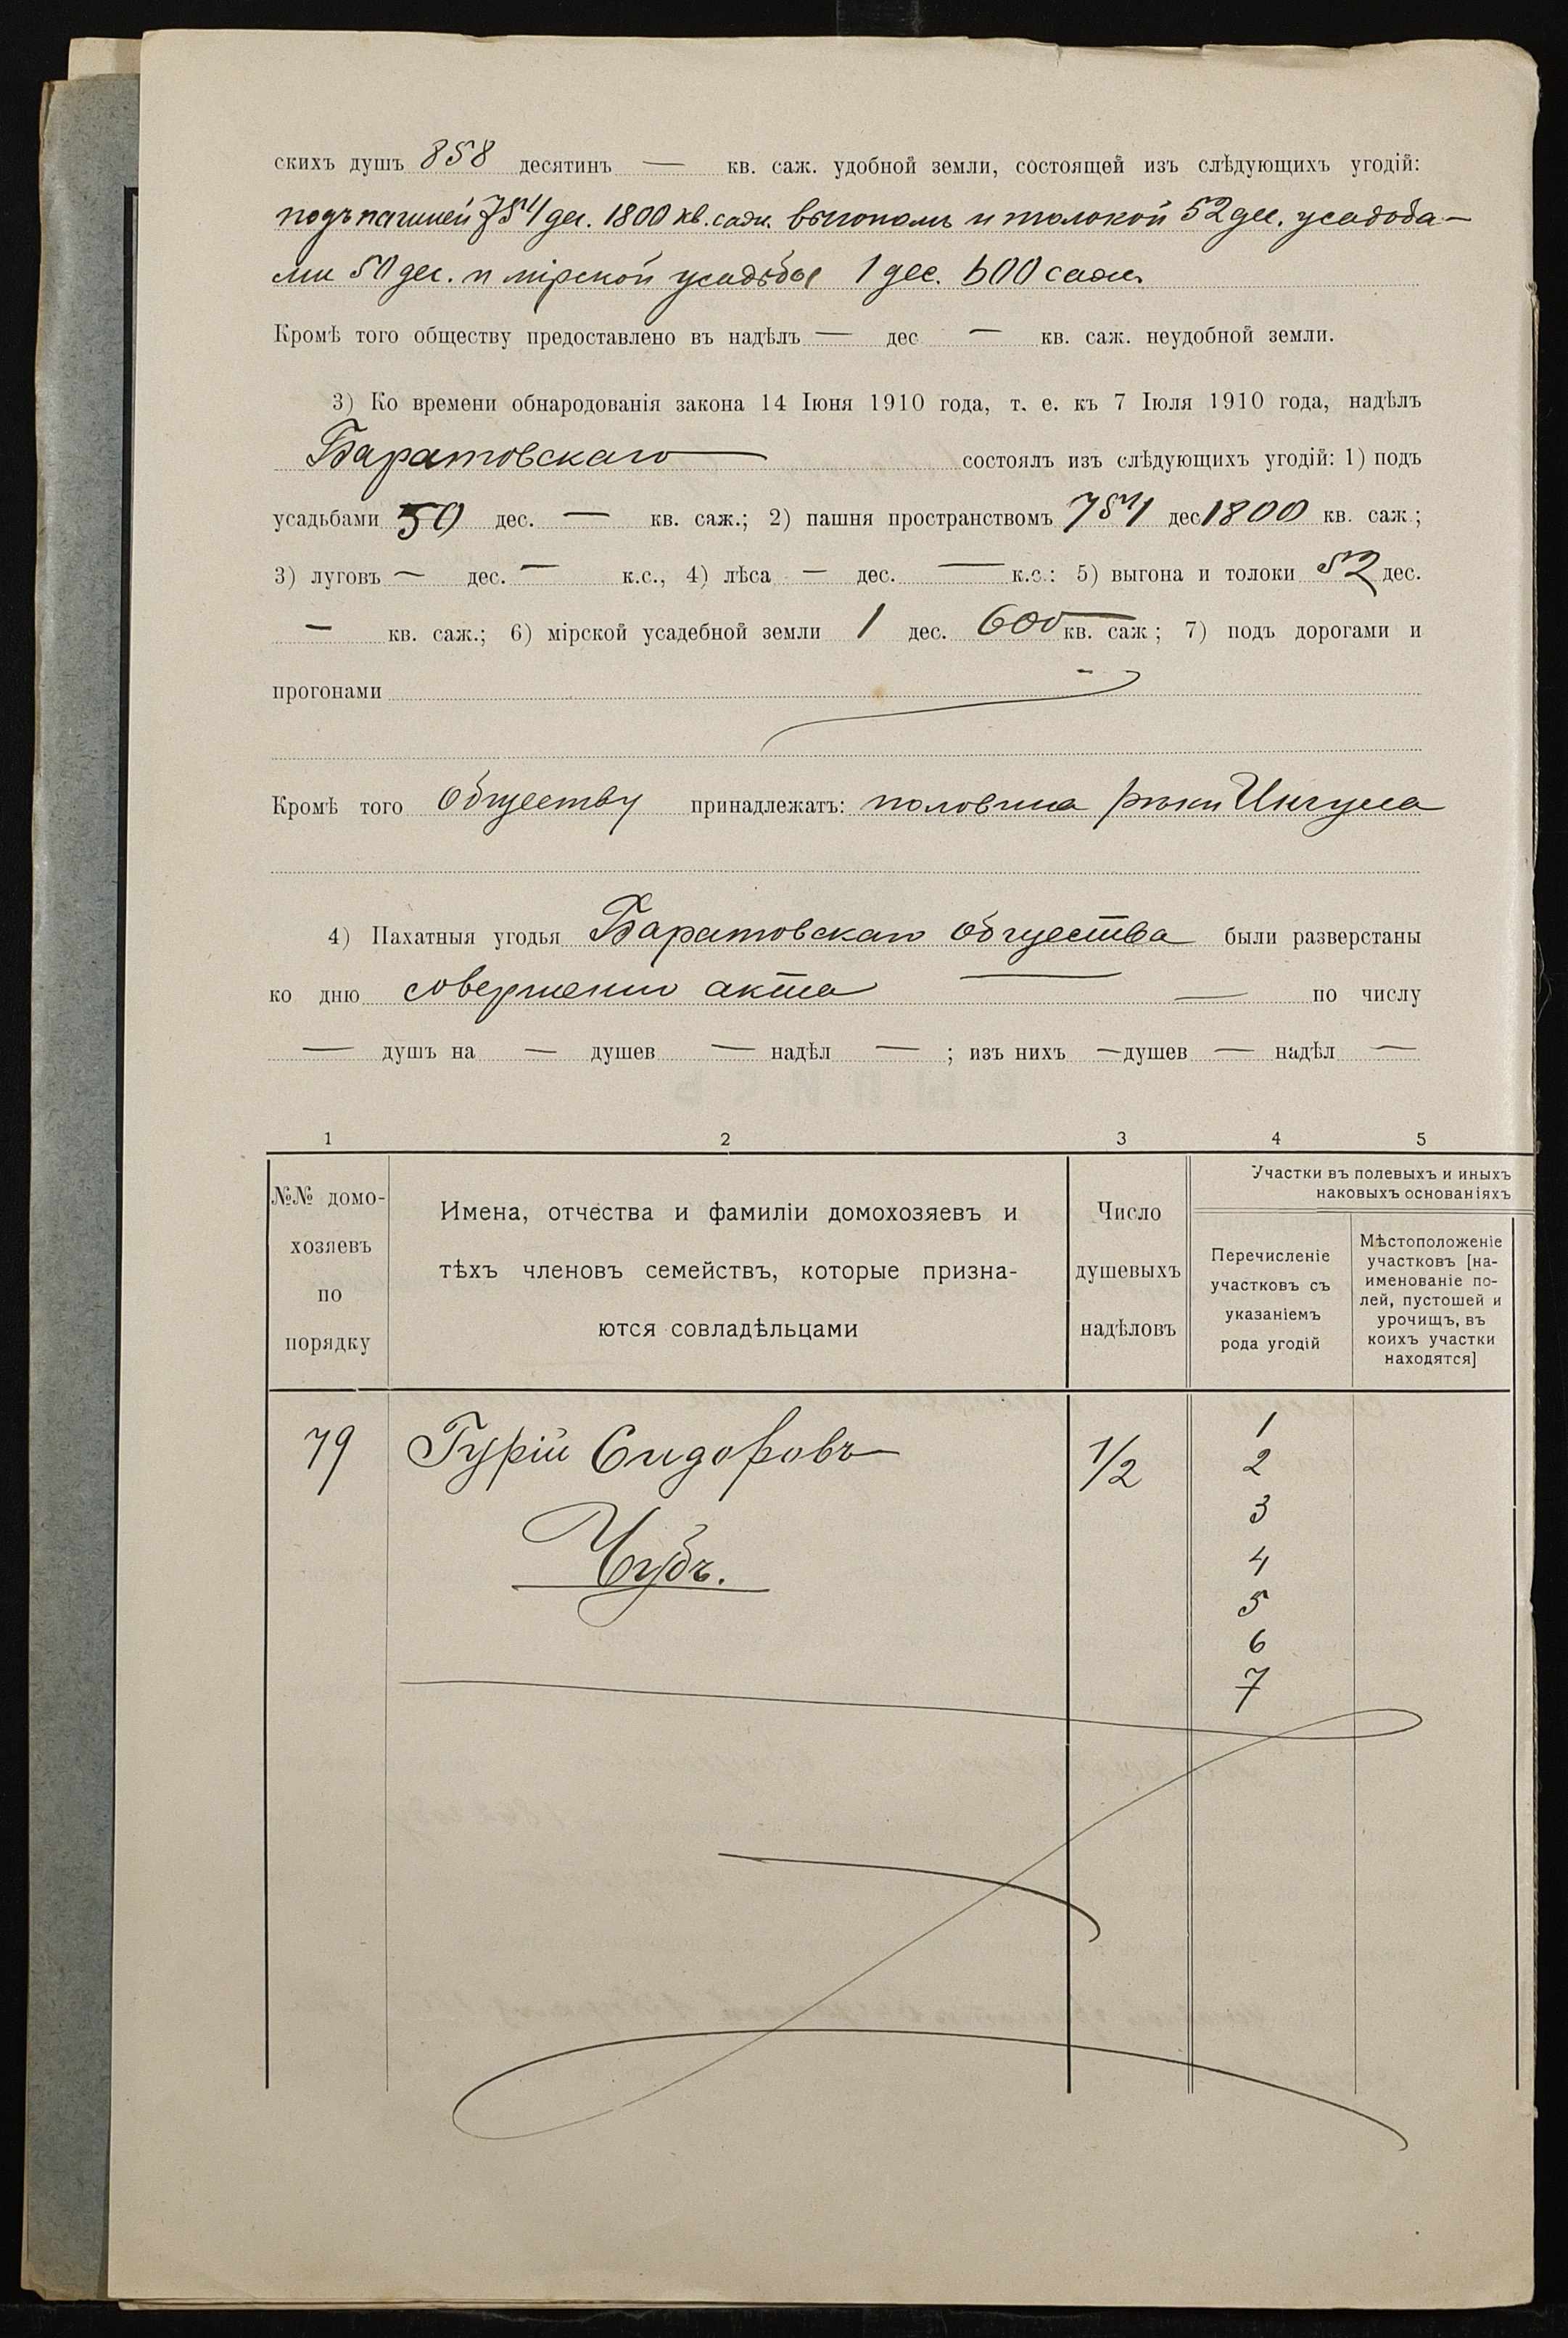 скихъ душъ 858 десятинъ — кв. саж. удобной земли, состоящей изъ слѣдующихъ угодій:
подъ пашней 754 дес. 1800 кв. саж. выгономъ и толокой 52 дес. усадьба-
ми 50 дес. и мірской усадьбы 1 дес. 600 саж.
Кромѣ того обществу предоставлено въ надѣлъ — дес — кв. саж. неудобной земли.
3) Ко времени обнародованія закона 14 Іюня 1910 года, т. е. къ 7 Іюля 1910 года, надѣлъ
Баратовскаго состоялъ изъ слѣдующихъ угодій: 1) подъ
усадьбами 50 дес. — кв. саж.; 2) пашня пространствомъ 754 дес 1800 кв. саж;
3) луговъ — дес. — к.с., 4) лѣса — дес. — к.с.: 5) выгона и толоки 52 дес.
— кв. саж.; 6) мірской усадебной земли 1 дес. 600 кв. саж; 7) подъ дорогами и
прогонами —
Кромѣ того обществу принадлежатъ: половина рѣки Ингула
4) Пахатныя угодья Баратовскаго общества были разверстаны
ко дню совершенія акта — по числу
— душъ на — душев — надѣл — ; изъ нихъ — душев — надѣл —
1 2 3 4 5
№№ домо-
хозяевъ
по
порядку
Имена, отчества и фамиліи домохозяевъ и
тѣхъ членовъ семействъ, которые призна-
ются совладѣльцами
Число
душевыхъ
надѣловъ
Участки въ полевыхъ и иныхъ
наковыхъ основаніяхъ
Перечисленіе
участковъ съ
указаніемъ
рода угодій
Мѣстоположеніе
участковъ [на-
именованіе по-
лей, пустошей и
урочищъ, въ
коихъ участки
находятся]
79 Гурій Сидоровъ 1/2 1
2
3
Чубъ. 4
5
6
7